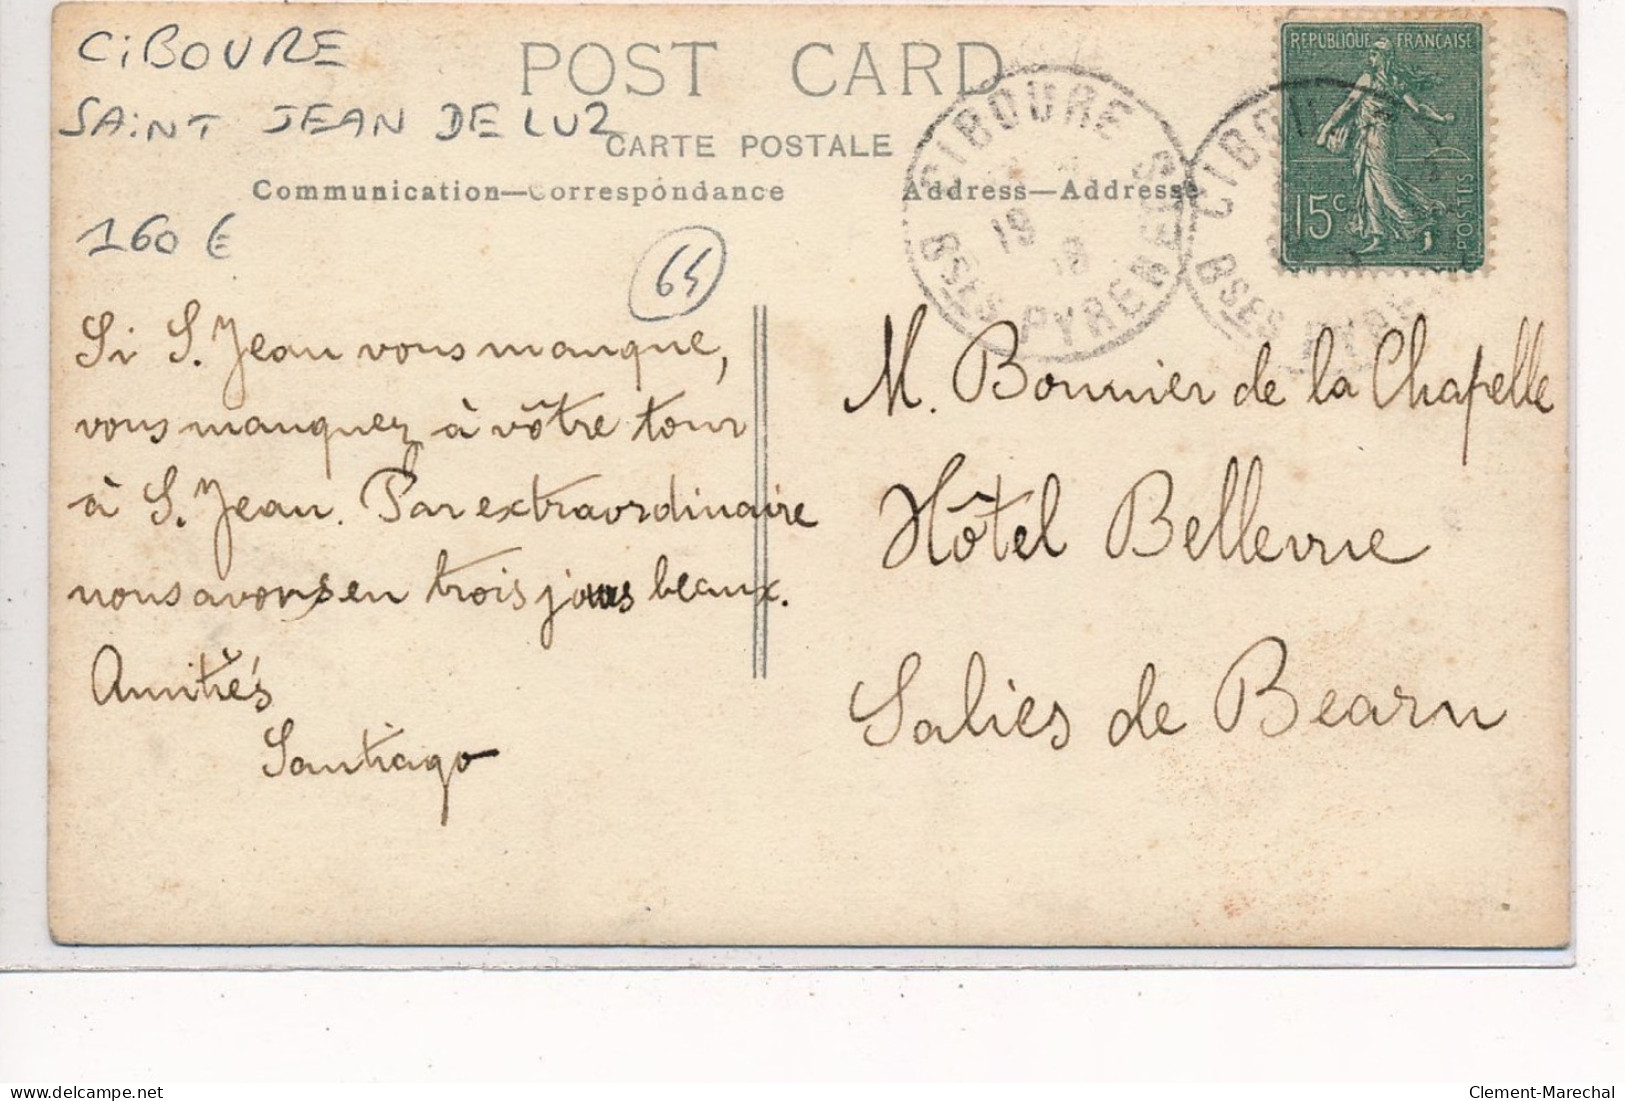 CiBOURE
SAiNT JEAN DE LUZ
POST CARD
CARTE POSTALE
Communication—Correspondance
Address—Addresse
160 €
64
CIBOURE
19
18
BSES PYRENEES
CIBOU
BSES PYR
REPUBLIQUE FRANÇAISE
15c
POSTES
Si S. Jean vous manque,
vous manquez à vôtre tour
à S. Jean. Par extraordinaire
nous avons en trois jours beaux.
Amitiés
Santiago
M. Bonnier de la Chapelle
Hôtel Bellevue
Salies de Bearn
Clement-Marechal